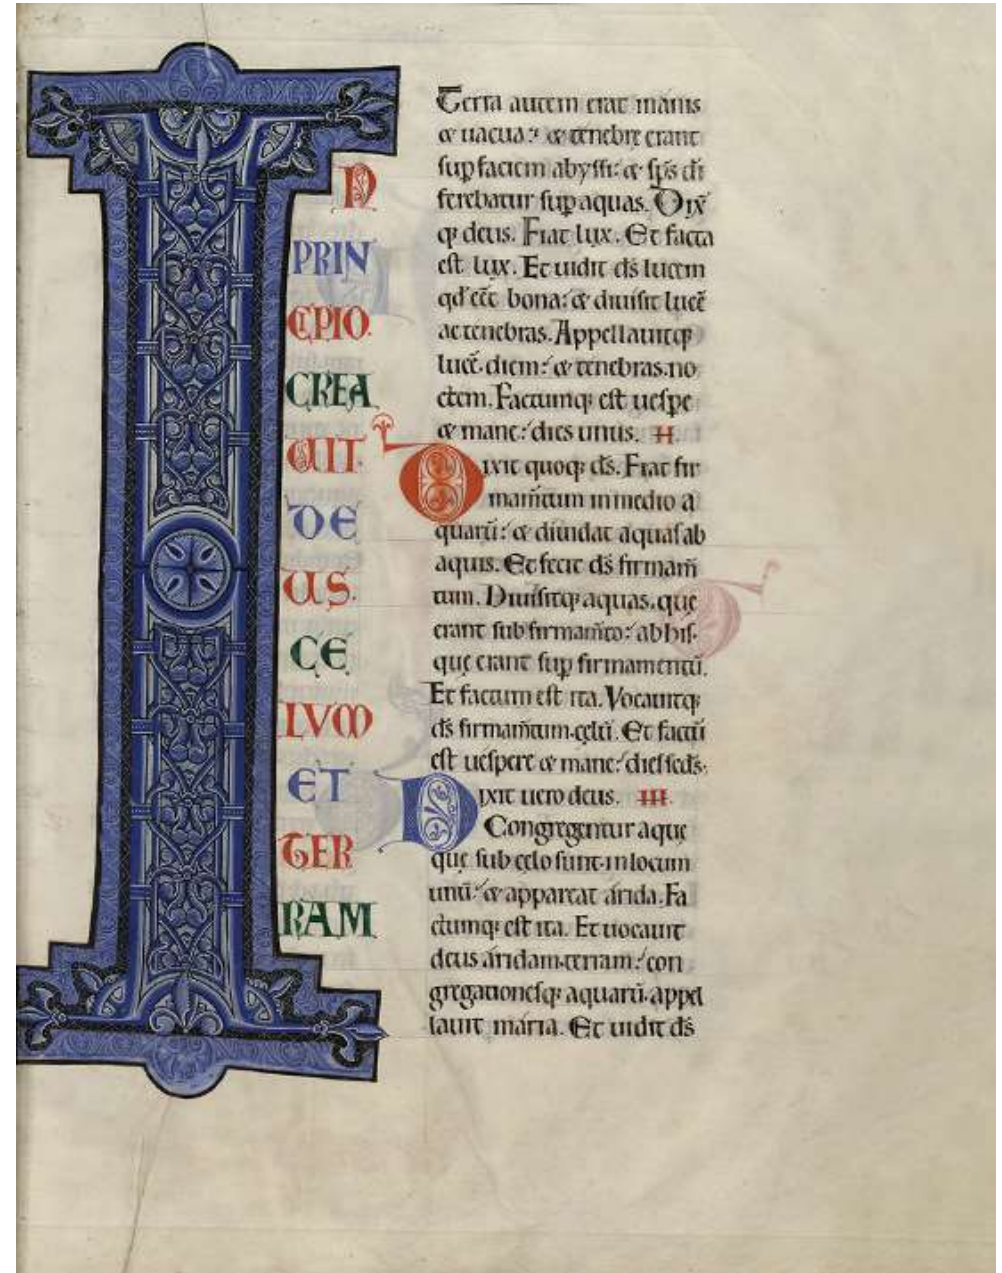 IN
PRIN
CIPIO.
CREA
UIT.
DE
US.
CE
LVM
ET
TER
RAM
Terra autem erat inanis
& uacua: & tenebrę erant
sup faciem abyssi: & sp̄s dī
ferebatur sup aquas. Dix̄
q; deus. Fiat lux. Et facta
est lux. Et uidit d̄s lucem
qd' ēēt bona: & diuisit lucē
ac tenebras. Appellauitq;
lucē. diem: & tenebras. no
ctem. Factumq; est uespe
& mane: dies unus. II.
Dixit quoq; d̄s. Fiat fir
mam̄tum in medio a
quarū: & diuidat aquas ab
aquis. Et fecit d̄s firmam̄
tum. Diuisitq; aquas. quę
erant sub firmam̄to: ab his.
quę erant sup firmamentū.
Et factum est ita. Vocauitq;
d̄s firmam̄tum. cęlū. Et factū
est uespere & mane: dies sed̄s.
Dixit uero deus. III.
Congregentur aquę
quę sub cęlo sunt. in locum
unū: & appareat árida. Fa
ctumq; est ita. Et uocauit
deus áridam. terram: con
gregationesq; aquarū. appel
lauit mária. Et uidit d̄s